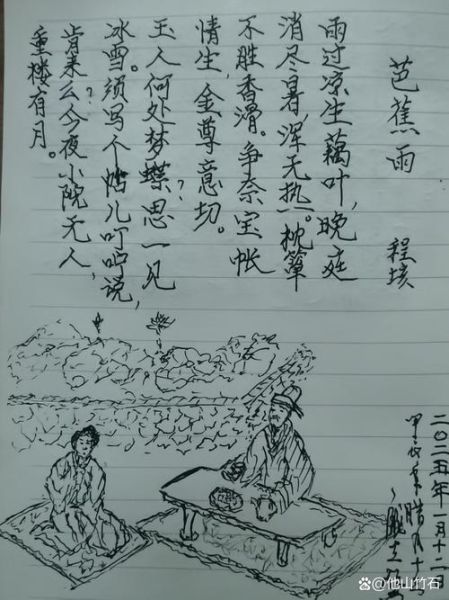 芭蕉雨　程垓
雨过凉生藕叶，晚庭
消尽暑，浑无热。枕簟
不胜香滑。争奈宝帐
情生，金尊意切。
玉人何处梦蝶？思一见
冰雪。须写个帖儿叮咛说，
肯来么？今夜小院无人，
重楼有月。
二〇二五年一月十二日
甲辰年腊月十三
@他山竹石